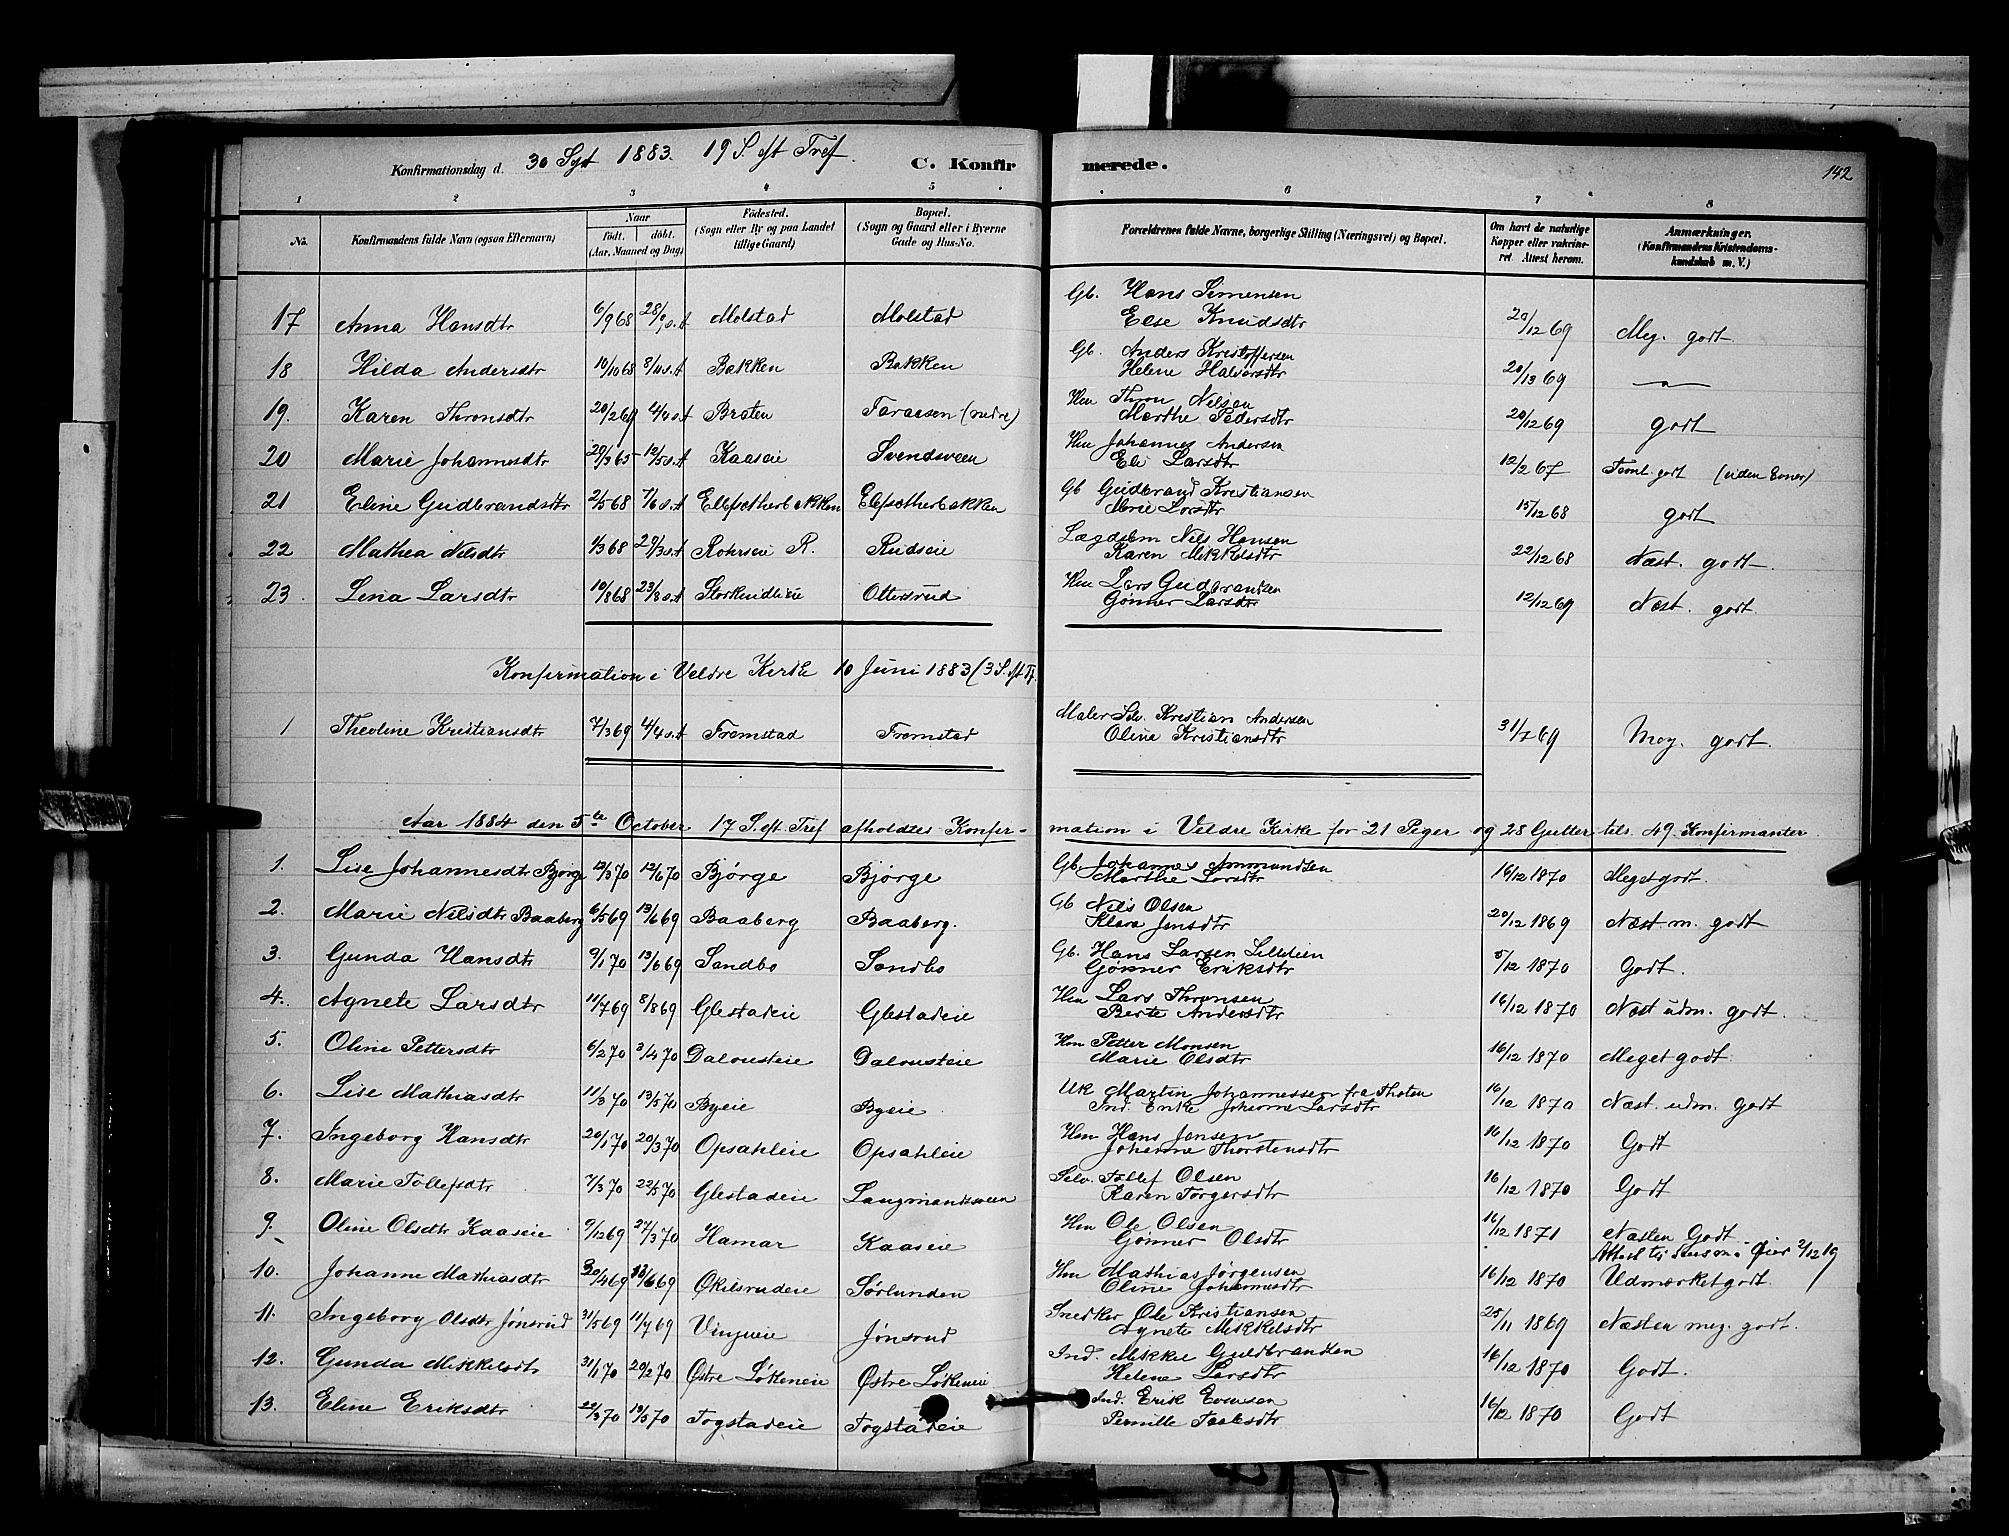 Konfirmationsdag d. 30 Sept 1883. 19 S. eft Tref. C. Konfir merede. 142
1 2 3 4 5 6 7 8
No. Konfirmandens fulde Navn (ogsaa Efternavn) Naar født. døbt. (Aar, Maaned og Dag) Fødested. (Sogn eller By og paa Landet tillige Gaard) Bopæl. (Sogn og Gaard eller i Byerne Gade og Hus-No. Forældrenes fulde Navne, borgerlige Stilling (Næringsvei) og Bopæl. Om havt de naturlige Kopper eller vakcineret. Attest herom. Anmærkninger. (Konfirmandens Kristendomskundskab m. V.)
17 Anna Hansdtr 6/9 68 Molstad Molstad Gb. Hans Simensen
Else Knudsdtr 20/12 69 Meg. godt
18 Hilda Andersdtr 10/10 68 8/11 s.A Bakken Bakken Gb. Anders Kristoffersen
Helene Halvorsdtr 69
19. Karen Thronsdtr 20/2 69 4/4 s.A Braten Taraasen (nedre) Hm Thron Nelsen
Marthe Pedersdtr 20/12 69 godt
20 Marie Johannesdtr 20/3 65 12/5 s.A Kaaseie Svendsveen Hm Johannes Andersen
Eli Larsdtr 12/2 67 Teml. godt (uden Evner)
21 Eline Gudbrandsdtr 2/5 68 7/6 s.A Ellefsetherbakken Elefsetherbakken Gb Gudbrand Kristiansen
Marie Larsdtr 15/12 68 godt
22 Mathea Nilsdtr 1/3 68 29/3 s.A R. Rudseie Lægdslem Nils Hansen
Karen Mikkelsdtr 22/12 68 Næst. godt
23. Lena Larsdtr 10/8 68 23/8 s.A Ottersrud Hm Lars Gudbrandsen
Gønner Larsdtr 12/12 69 Næst. godt
Konfirmation i Veldre Kirke 10 Juni 1883 (3 S. eft Tf.
1 Theoline Kristiansdtr 7/3 69 4/4 s.A Fremstad Fremstad Maler Selv. Kristian Andersen
Olina Kristiansdtr 31/7 69 Meg. godt.
Aar 1884 den 5te October 17 S. eft Tref afholdtes Konfirmation i Veldre Kirke for 21 Piger og 28 Gutter tils. 49 Konfirmanter
1. Lise Johannesdtr Bjørge 12/3 70 12/6 70 Bjørge Bjørge Gb. Johannes Ammundsen
Marthe Larsdtr 16/12 1870 Meget godt.
2. Marie Nilsdtr Baaberg 6/5 69 13/6 69 Baaberg Baaberg. Gb Nils Olsen
Klara Jensdtr 20/12 1869 Næst m. godt
3. Gunda Hansdtr 9/1 70 13/6 69 Sandbo Sandbo Gb. Hans Larsen
Gønner Eriksdtr 5/12 1870 Godt.
4. Agnete Larsdtr 11/7 69 8/8 69 Glestadeie Glestadeie Hm Lars Thronsen
Berte Andersdtr 16/12 1870 Næst udm. godt.
5. Oline Pettersdtr 6/2 70 3/4 70 Dalousteie Dalousteie Hm Petter Monsen
Marie Olsdtr 16/12 1870 Meget godt.
6. Lise Mathiasdtr 11/3 70 13/5 70 Byeie Byeie Uk Martin Johannessen fra Thoten
Ind. Enke Johanne Larsdtr 16/12 1870 Næst. udm. godt
7. Ingeborg Hansdtr 20/1 70 20/3 70 Opsahleie Opsahleie Hm Hans Jensen
Johanne Thorstensdtr 16/12 1870 Godt
8. Marie Tollefsdtr 7/3 70 22/5 70 Glestadeie Langmandsveen Selv. Tollef Olsen
Karen Torgersdtr 16/12 1870 Godt
9. Oline Olsdtr Kaaseie 9/12 69 27/3 70 Hamar Kaaseie Hm Ole Olsen
Gønner Olsdtr 16/12 1871 Næsten Godt.
10. Johanne Mathiasdtr 20/4 69 13/6 69 Økilsrudeie Sørlunden Hm Mathias Jørgensen
Oline Johannesdtr 16/12 1870 Udmerket godt.
11. Ingeborg Olsdtr Jønsrud 31/5 69 11/7 69 Vinjueie Jønsrud Snedker Ole Kristiansen
Agnete Mikkelsdtr 25/11 1869 Næsten meg. godt.
12. Gunda Mikkelsdtr 31/1 70 20/2 70 Østre Løkeneie Østre Løkeneie Ind. Mikkel Guldbrandsen
Helene Larsdtr 16/12 1870 Godt.
13. Eline Eriksdtr 22/3 70 70 Togstadeie Togstadeie Ind. Erik Evensen
Pernille 16/12 1870 Godt